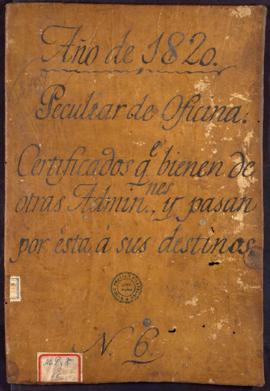 Año de 1820.
Peculiar de Oficina.
Certificados qe bienen de
otras Adminnes, y pasan
por ésta á sus destinos.
N. 6.